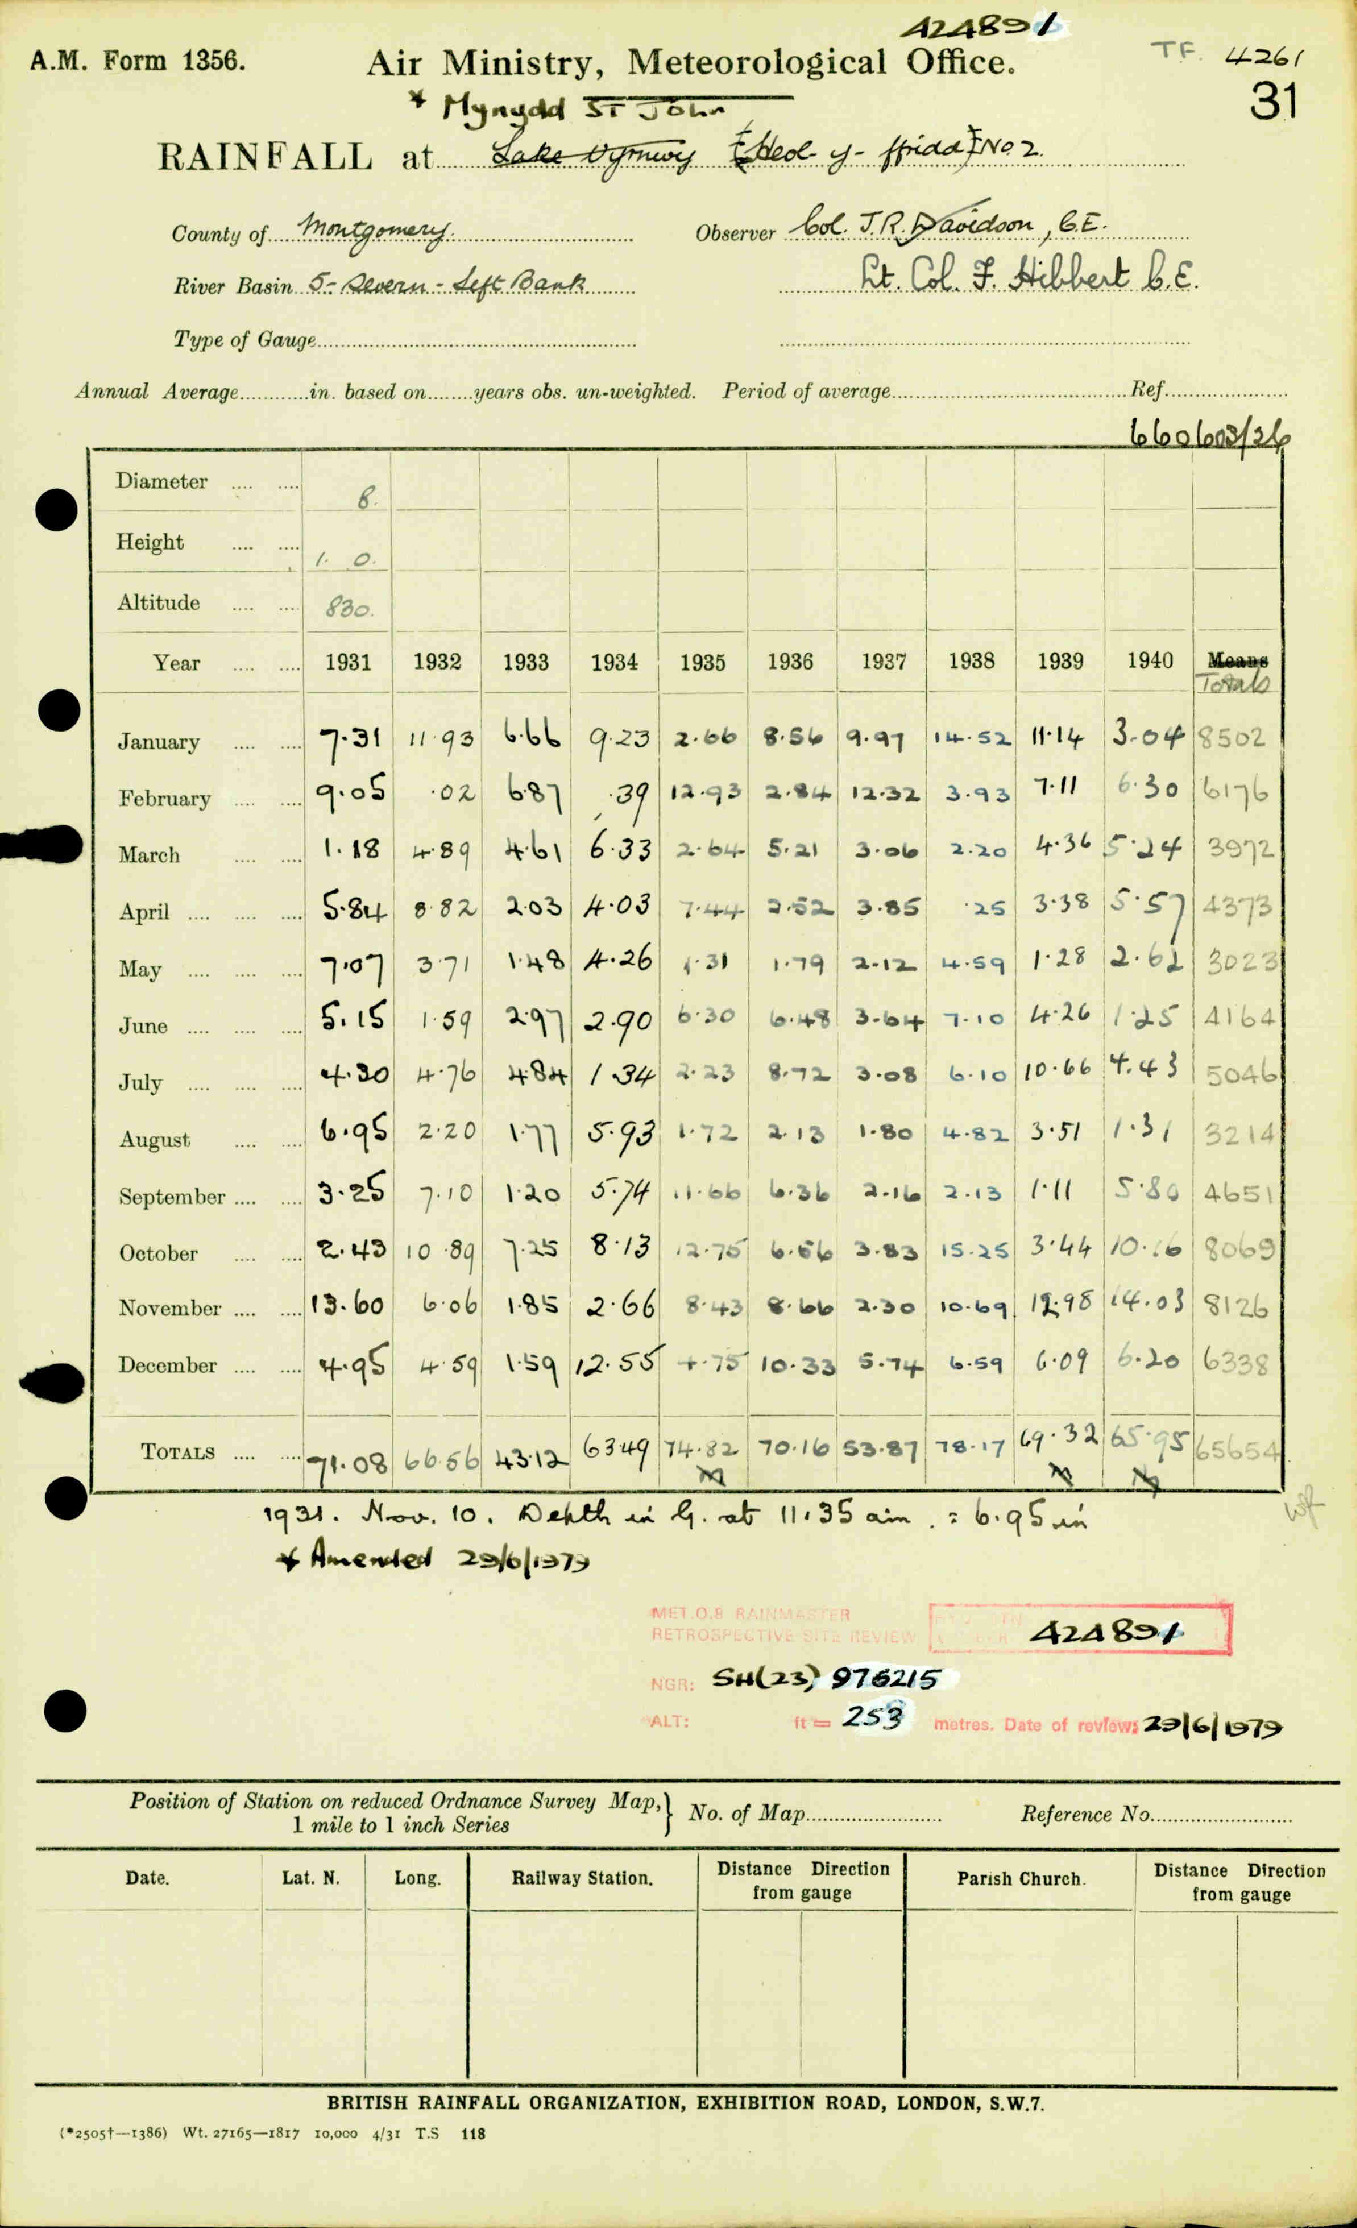 424891
A.M. Form 1356.
Air Ministry, Meteorological Office.
TF. 4261
31
* Mynydd St John
RAINFALL at Lake Vyrnwy (Heol-y-ffridd) No 2.
County of Montgomery.
Observer Col. J.R. Davidson, C.E.
River Basin 5 - Severn - Left Bank
Lt. Col. F. Hibbert C.E.
Type of Gauge
Annual Average in. based on years obs. un-weighted. Period of average Ref.
660603/26
Diameter 8.
Height 1. 0.
Altitude 830.
Year 1931 1932 1933 1934 1935 1936 1937 1938 1939 1940 Means
Totals
January 7.31 11.93 6.66 9.23 2.66 8.56 9.97 14.52 11.14 3.04 8502
February 9.05 .02 6.87 .39 12.93 2.84 12.32 3.93 7.11 6.30 6176
March 1.18 4.89 4.61 6.33 2.64 5.21 3.06 2.20 4.36 5.24 3972
April 5.84 8.82 2.03 4.03 7.44 2.52 3.85 .25 3.38 5.57 4373
May 7.07 3.71 1.48 4.26 1.31 1.79 2.12 4.59 1.28 2.62 3023
June 5.15 1.59 2.97 2.90 6.30 6.48 3.64 7.10 4.26 1.25 4164
July 4.30 4.76 4.84 1.34 2.23 8.72 3.08 6.10 10.66 4.43 5046
August 6.95 2.20 1.77 5.93 1.72 2.13 1.80 4.82 3.51 1.31 3214
September 3.25 7.10 1.20 5.74 11.66 6.36 2.16 2.13 1.11 5.80 4651
October 2.43 10.89 7.25 8.13 12.75 6.56 3.83 15.25 3.44 10.16 8069
November 13.60 6.06 1.85 2.66 8.43 8.66 2.30 10.69 12.98 14.03 8126
December 4.95 4.59 1.59 12.55 4.75 10.33 5.74 6.59 6.09 6.20 6338
TOTALS 71.08 66.56 43.12 63.49 74.82 70.16 53.87 78.17 69.32 65.95 65654
1931. Nov. 10. Depth in G. at 11.35 am. = 6.95 in
* Amended 29/6/1979
MET.O.8 RAINMASTER
RETROSPECTIVE SITE REVIEW 424891
NGR: SH(23) 976215
ALT: ft = 253 metres. Date of review: 29/6/1979
Position of Station on reduced Ordnance Survey Map,
1 mile to 1 inch Series
No. of Map
Reference No.
Date. Lat. N. Long. Railway Station. Distance Direction from gauge Parish Church. Distance Direction from gauge
BRITISH RAINFALL ORGANIZATION, EXHIBITION ROAD, LONDON, S.W.7.
(*2505†—1386) Wt. 27165—1817 10,000 4/31 T.S 118